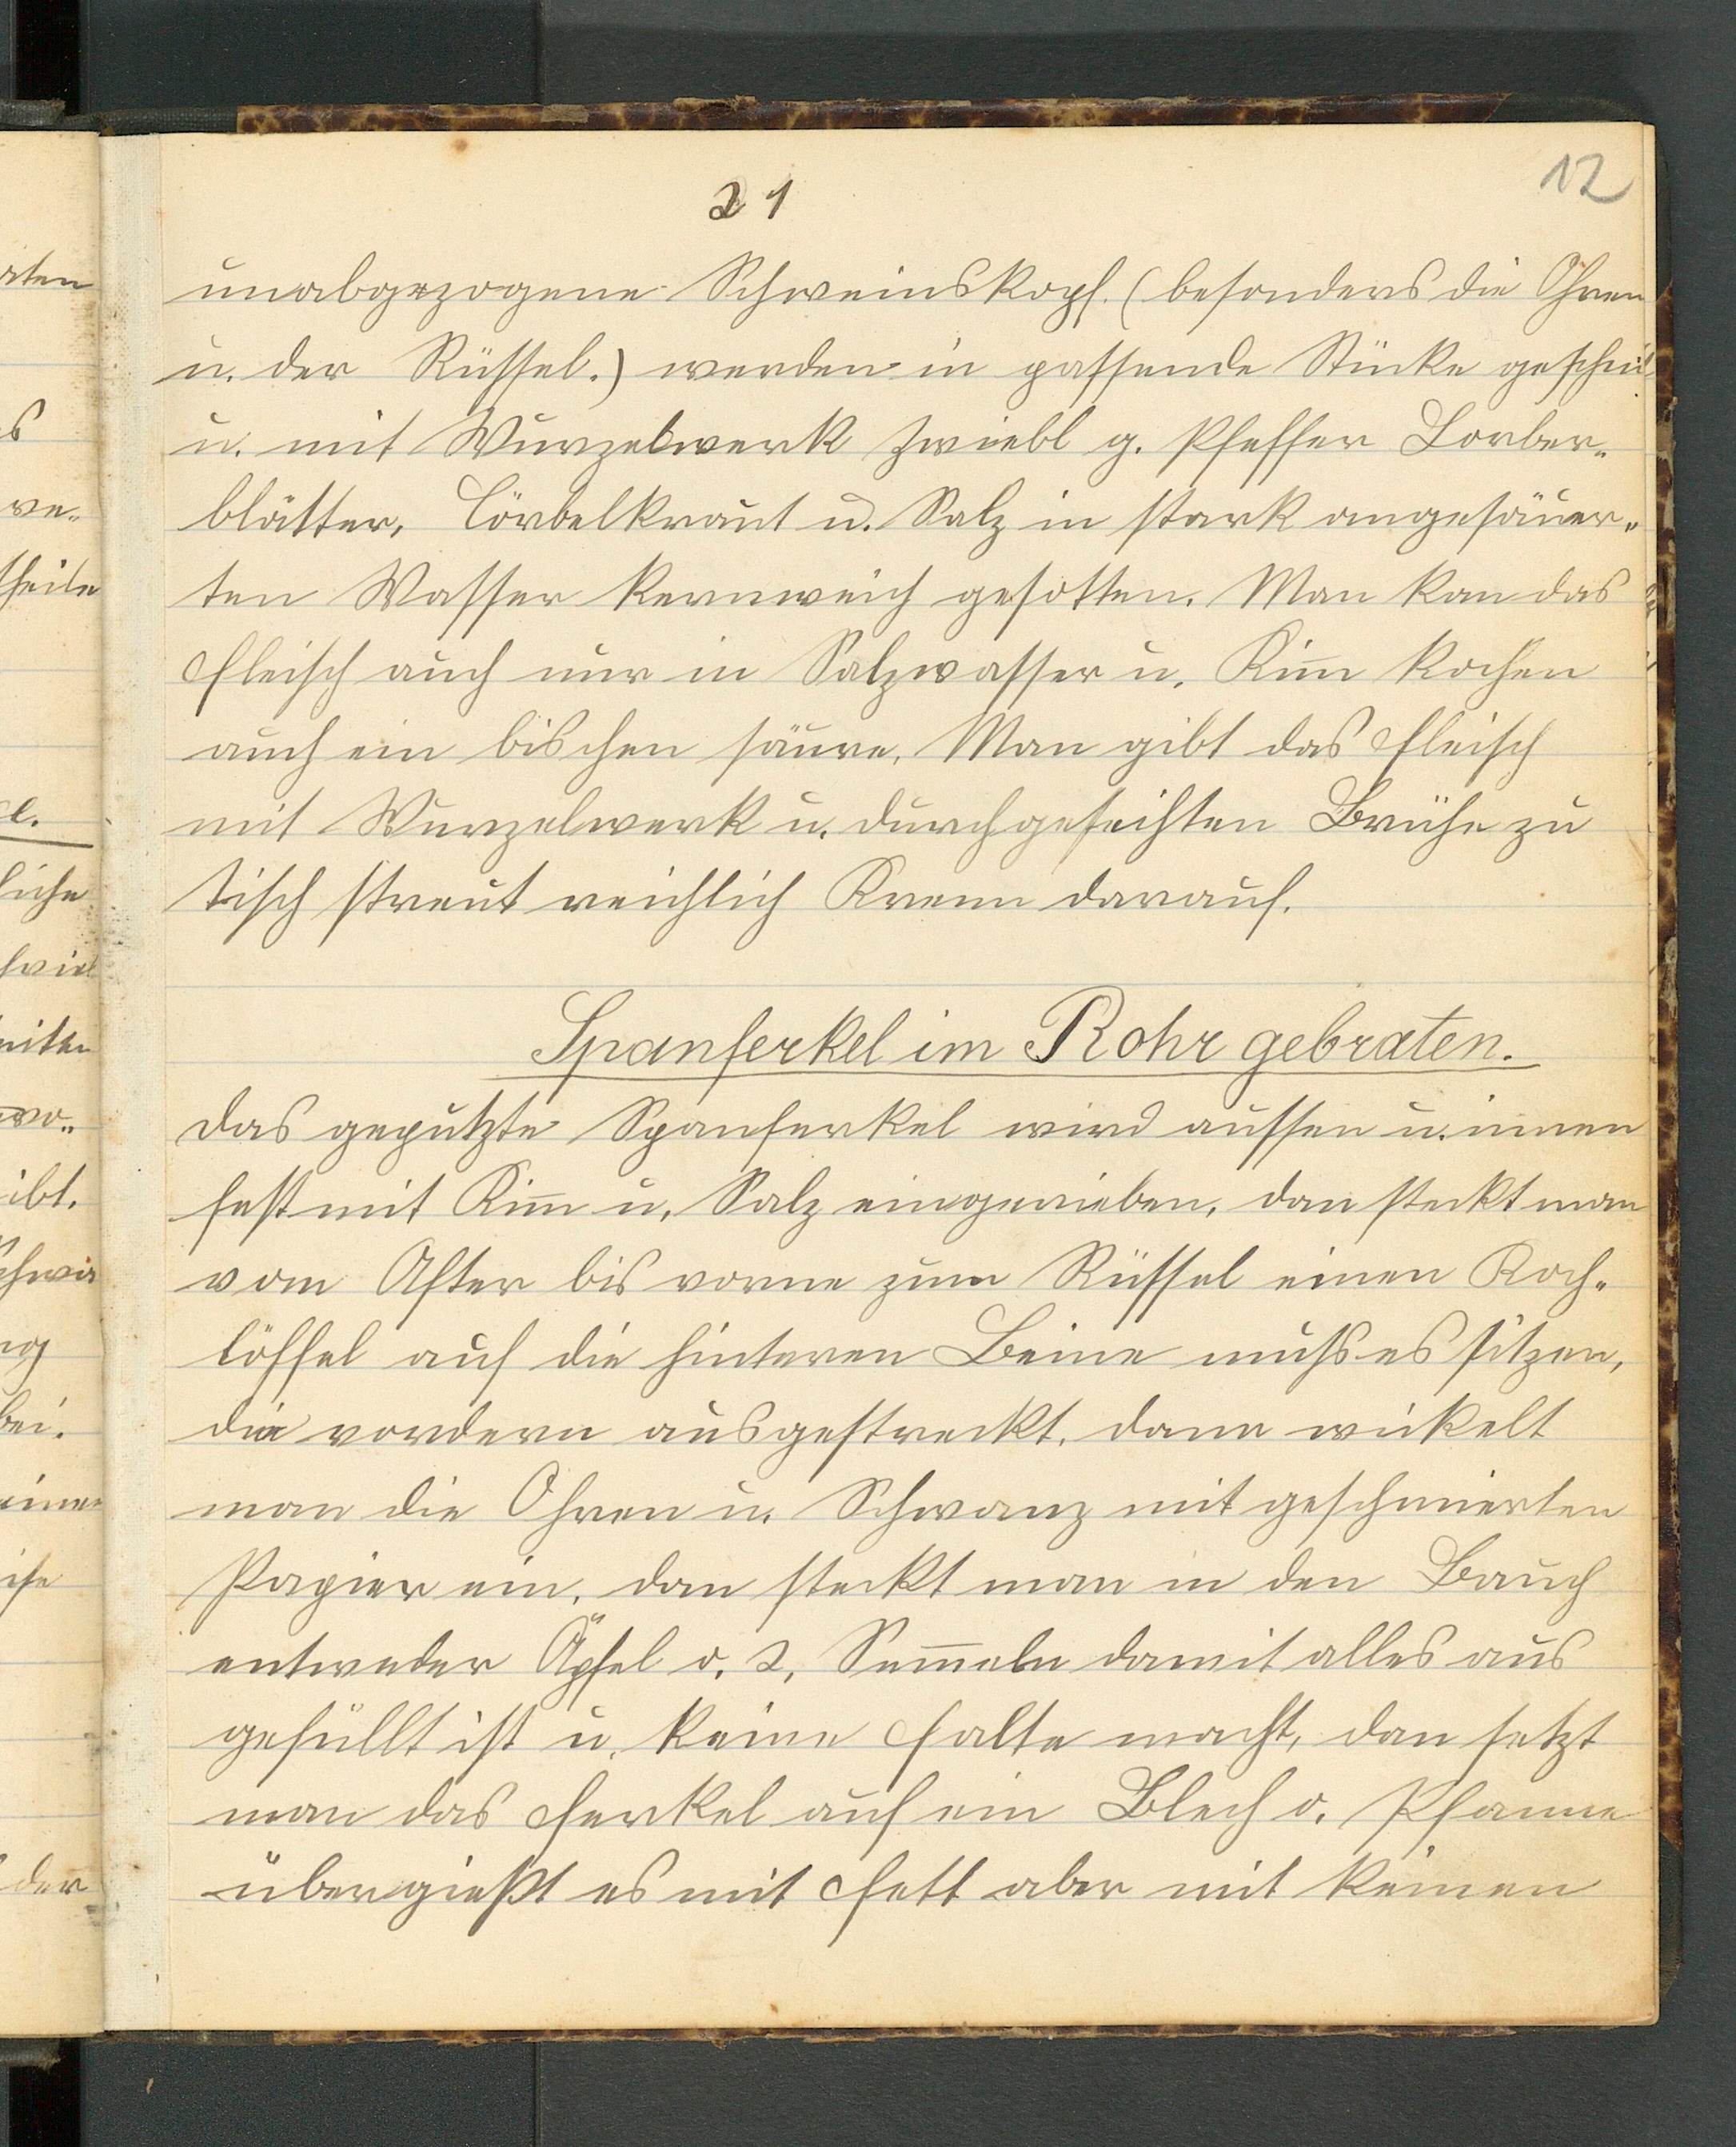 21
12
unabgezogene Schweinskopf. (besonders die Ohren
u. der Rüssel.) werden in passende Stücke
u. mit Wurzelwerk Zwiebl g. Pfeffer Lorber„
blätter, Cörbelkraut u. Salz in stark angesäuer„
ten Wasser kernweich gesotten. Man kan das
Fleisch auch nur in Salzwasser u. Kim̅ kochen
auch ein bischen säure. Man gibt das Fleisch
mit Wurzelwerk u. durchgeseihten Brühe zu
tisch streut reichlich Krenn darauf.
Spanferkel im Rohr gebraten.
das geputzte Spanferkel wird aussen u. innen
fest mit Kim̅ u. Salz eingerieben, dan steckt man
vom After bis vorne zum Rüssel einen Koch„
löffel auf die hinteren Beine muss es sitzen,
die vordern ausgestreckt, dann wickelt
man die Ohren u. Schwanz mit geschmierten
Papier ein, dan steckt man in den Bauch
entweder Äpfel o. 2, Sem̅eln damit alles aus
gefüllt ist u. keine Falte macht, dan setzt
man das Ferkel auf ein Blech o. Pfanne
übergießt es mit Fett aber mit keinen